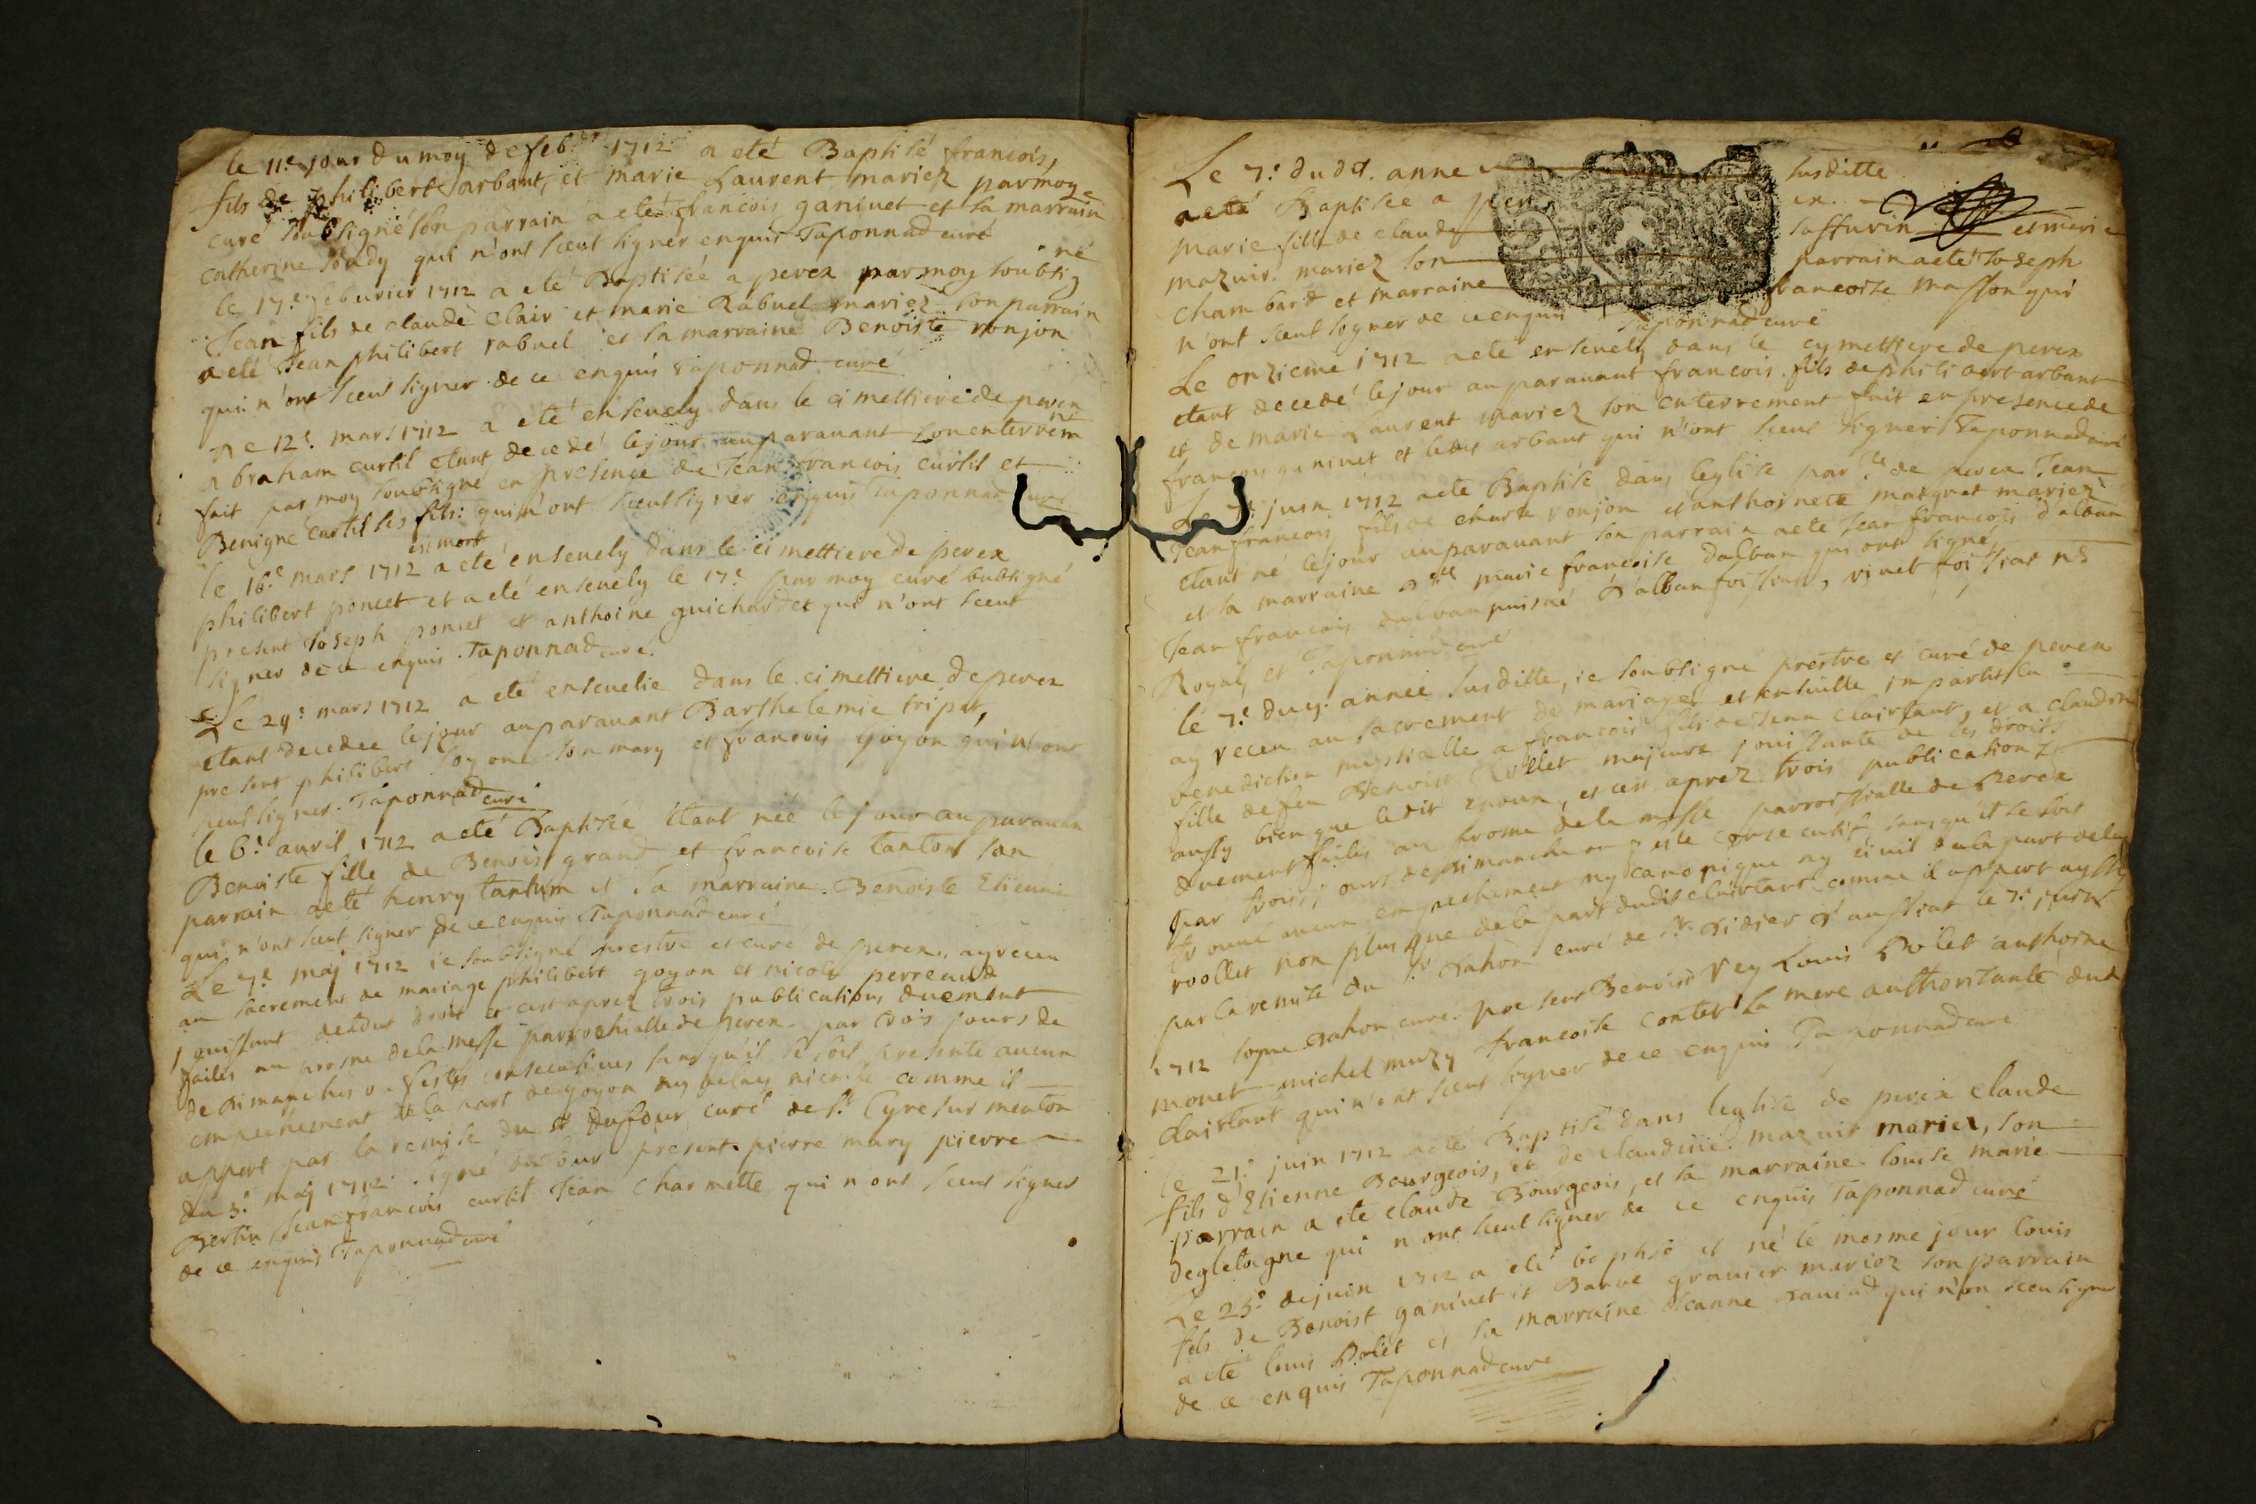 le 11e jour du moy de feb.er 1712 a eté Baptisé francois,
fils de philibert arbant, et marie Laurent mariez par moy
curé soubsigné son parrain a eté francois ganivet et sa marrain e
Catherine qui n'ont sceut signer enquis Taponnad curé
le 17.e feburier 1712 a eté Baptiséé a perex par moy soubsig né
Jean fils de claude clair et marie Rabuel mariez son parrain
a eté Jean philibert rabuel et sa marraine Benoiste ronjon
qui n'ont sceut signer de ce enquis Taponnad curé
Le 12.e mars 1712 a eté enseuely dans le cimettiere de perex
abraham curtil etant decedé le jour auparauant son enterrem
fait par moy soubsigné en presence de Jean francois curtil et
Benigne curtil ses fils: qui n'ont sceut signer enquis Taponnad curé
est mort
le 16.e mars 1712 a eté enseuely dans le cimettiere de perex
philibert poncet et a eté enseuely le 17.e par moy curé subsigné
present Joseph poncet et anthoine guichardet qui n'ont sceut
signer de ce enquis. Taponnad curé.
Le 29.e mars 1712 a eté enseuelie dans le cimettiere de perex
etant decedee le jour auparauant Barthelemie tripot,
present philibert goyon son mary et francois goyon qui n'ont
sceut signer. Taponnad curé
le 6.e auril 1712 a eté Baptiséé étant néé le jour auparauan
Benoiste fille de Benoist grand et francoise tanton son
parrain a eté henry tanton et sa marraine. Benoiste Etienne
qui n'ont sceut signer de ce enquis Taponnad curé
Le 7.e maj 1712 ie soubsigné prestre et curé de perex, ay receu
au sacrement de mariage philibert goyon et nicole perreaud
jouissant de droit et c'est aprez trois publications duement
faites au prosne de la messe parrochialle de perex par trois jours de
de dimanches ou festes consecutiues sans qu'il se soit presenté aucun
empechement de la part de goyon ny de lad nicole comme il
appert par la remise du sr dufour curé de st Cyre sur menton
du 3.e maj 1712. signé dufour present pierre mury pierre
Bertin Jean francois curtil Jean Charmette qui n'ont sceut signer
de ce enquis Taponnad curé
Le 7.e dudt. anne susditte
a eté Baptisée a perex
marie fille de claude saffurin et marie
mazuir. mariez son parrain a eté Joseph
chambard et marraine francoise masson qui
n'ont sceut signer de ce enquis Taponnad curé
Le onzieme 1712 a eté enseuely dans le cymettiere de perex
etant decedé le jour auparauant francois. fils de philibert arbant
et de marie Laurent mariez son enterrement fait en presence de
francois ganivet et ledit arbant qui n'ont sceut signer Taponnad curé
Le juin 1712 a eté Baptisé dans leglise par.lle de perex Jean
Jean francois fils de claude ronjon et anthoinette maignet mariez
etant né le jour auparauant son parrain a eté Jean francois dalban
et sa marraine marie francoise dalban qui ont signé,
Jean francois dalban puisné D'alban foissiat, vinet foissiat ns
Royal, et Taponnad curé
le 7.e du.. année susditte, ie soubsigné prestre et curé de perex
ay receu au sacrement de mariage et ensuitte imparti la
benediction nuptialle a francois fils de Jean clairtant, et a claudine
fille de feu Benoist Rollet majeure jouissante de ses droits
aussy bien que ledit epoux, et c'est aprez trois publications
duement faites au prosne de la messe parroissialle de Perex
par trois jours de dimanche et feste consecutif sans qu'il se soit
trouué aucun empechement ny canonique ny ciuil de la part de lad
roollet non plus que de la part dudit clairtant comme il appert aussy
par la remise du sr dahon curé de st. didier d'aussiat le 7.e juin
1712 signé dahon curé. present Benoist Rey Louis Bolet anthoine
monet michel muzy francoise contet la mere authorisante dud
clairtant qui n'ont sceut signer de ce enquis Taponnad curé
le 21.e juin 1712 a eté Baptisé dans leglise de perex claude
fils d'Etienne Bourgeois, et de claudine mazuir mariez, son
parrain a eté claude Bourgeois, et sa marraine. louise marie
degletagne qui n'ont sceut signer de ce enquis Taponnad curé
Le 25.e de juin 1712 a eté baptisé et né le mesme jour louis
fils de Benoist ganivet et Barbe granier mariez son parrain
a eté louis Bolet et sa marraine Jeanne dauiad qui n'on sceu signe
de ce enquis Taponnad curé